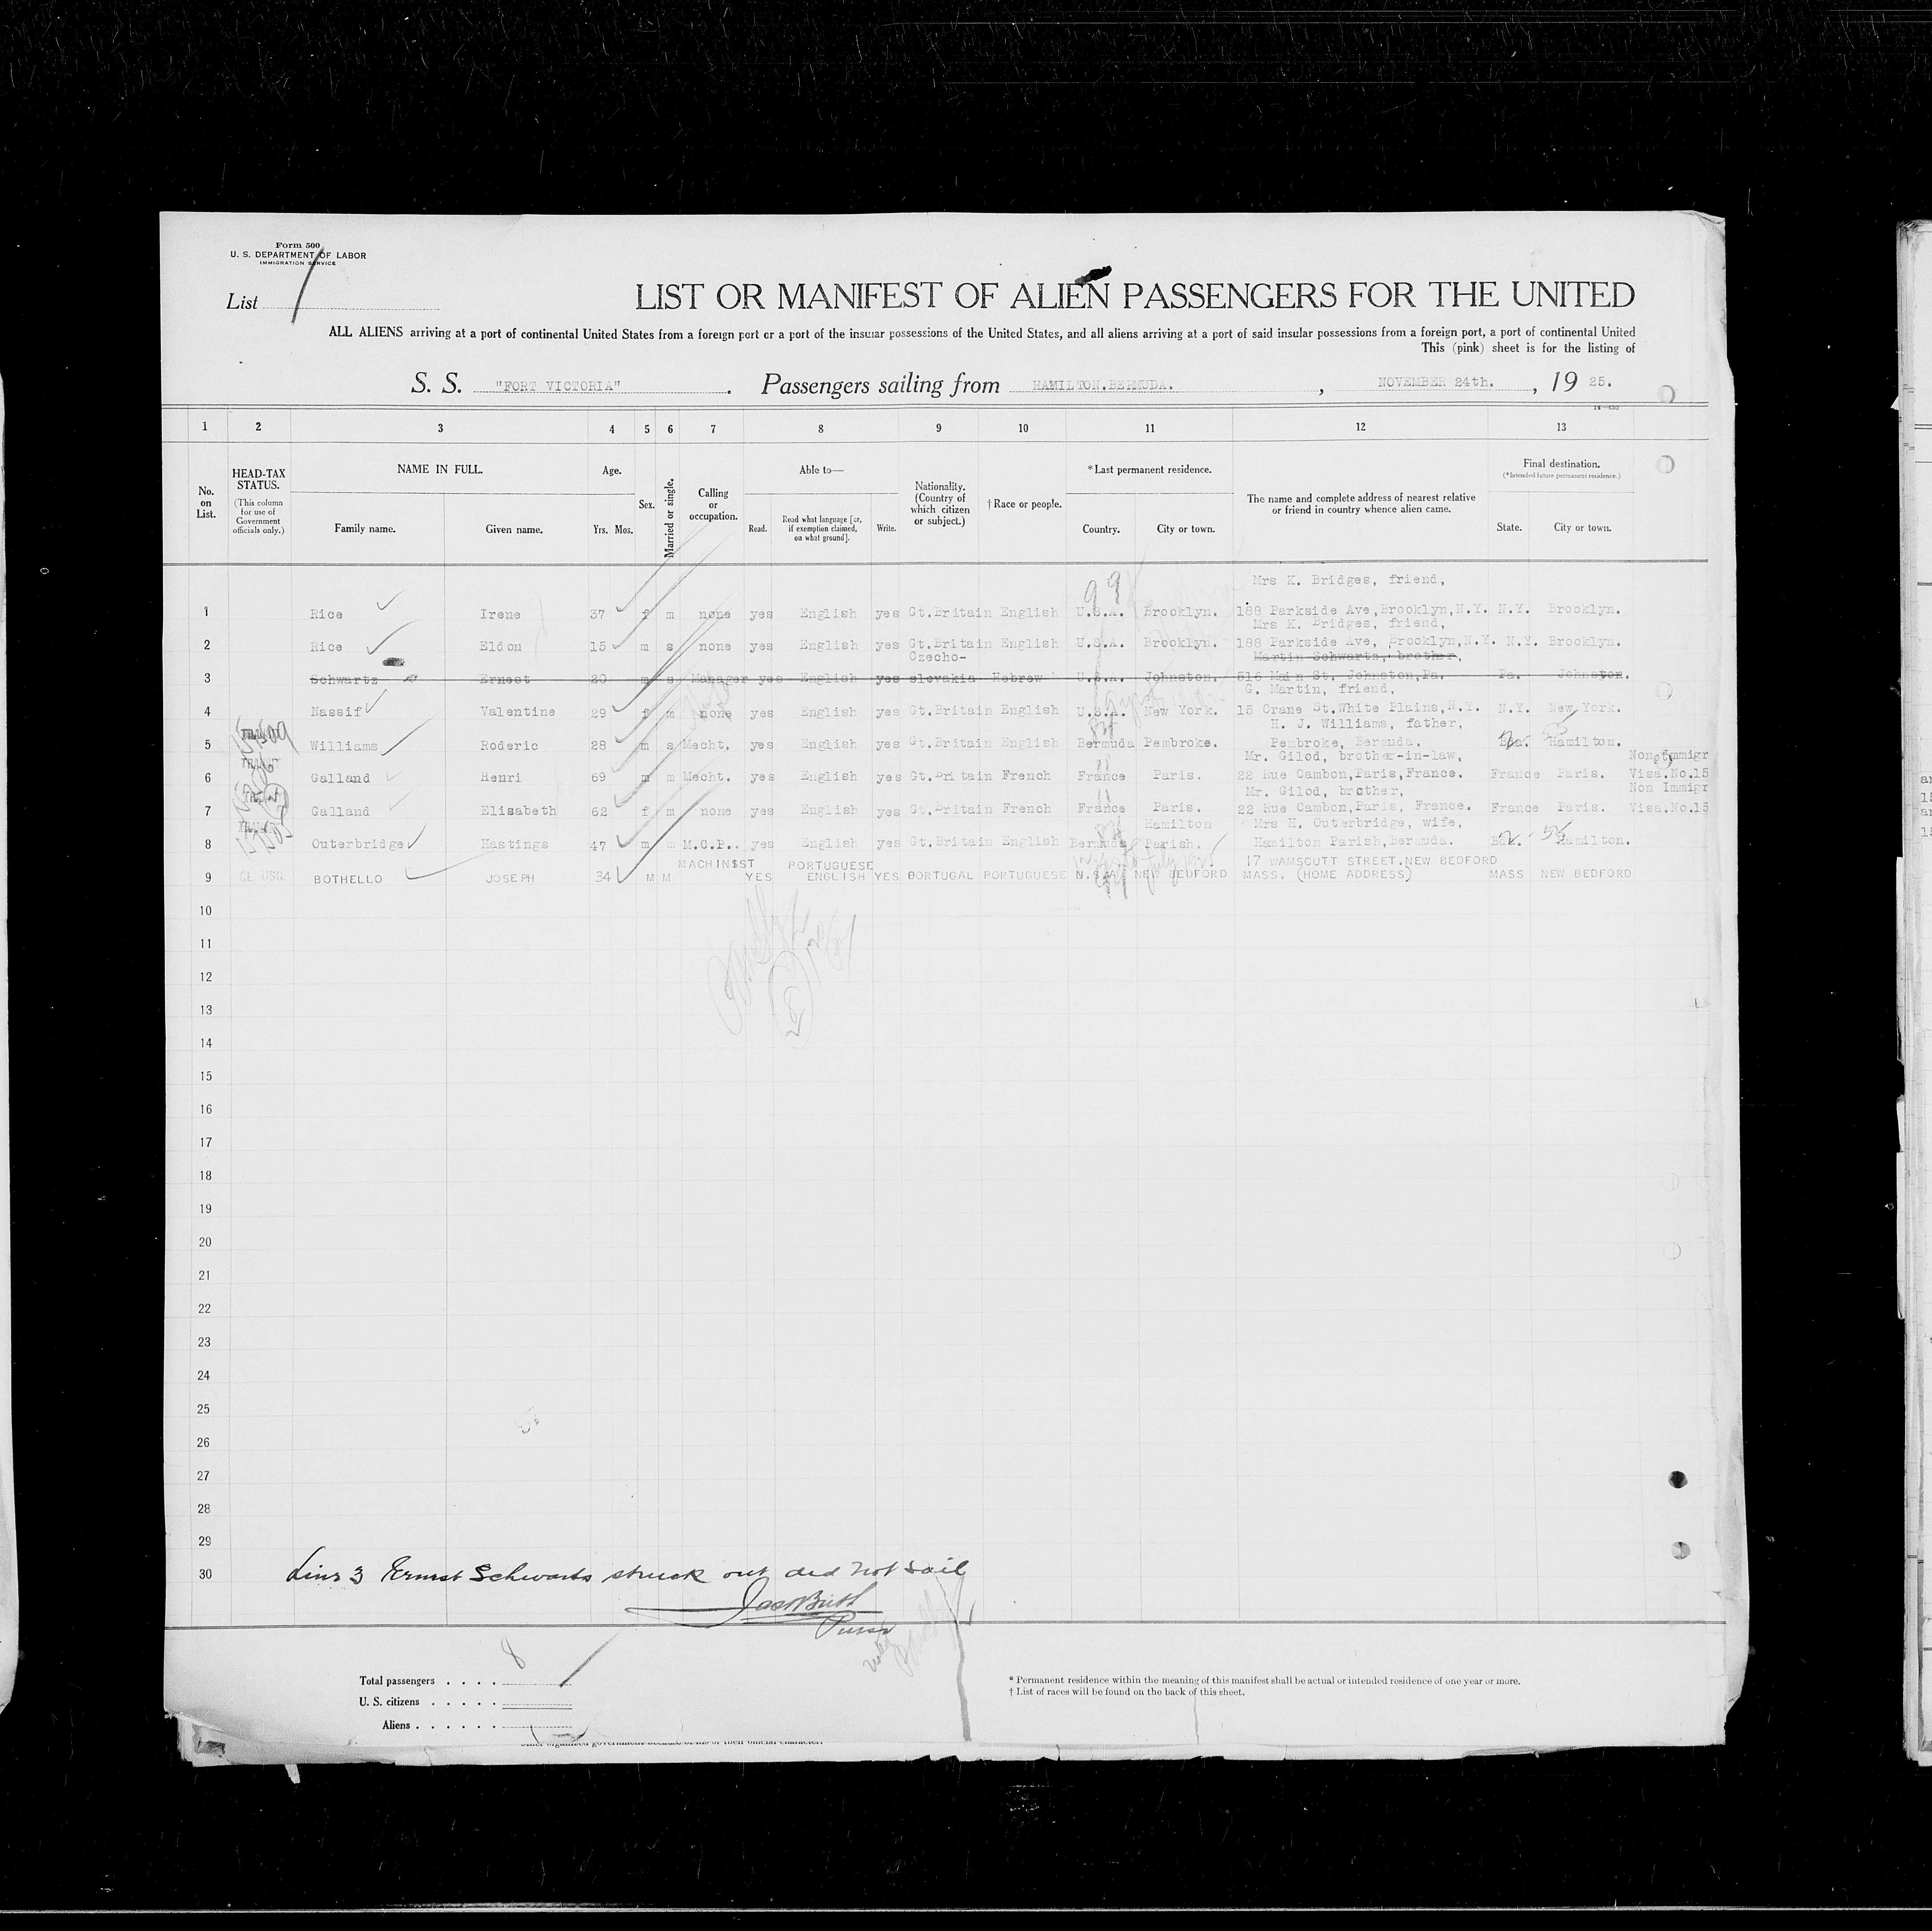 Form 500
U. S. DEPARTMENT OF LABOR
IMMIGRATION SERVICE
List 1
LIST OR MANIFEST OF ALIEN PASSENGERS FOR THE UNITED
ALL ALIENS arriving at a port of continental United States from a foreign port or a port of the insular possessions of the United States, and all aliens arriving at a port of said insular possessions from a foreign port, a port of continental United
This (pink) sheet is for the listing of
S. S. "FORT VICTORIA". Passengers sailing from HAMILTON.BERMUDA. , NOVEMBER 24th. , 19 25.
1 2 3 4 5 6 7 8 9 10 11 12 13
No. on List.
HEAD-TAX STATUS.
(This column for use of Government officials only.)
NAME IN FULL.
Family name. Given name.
Age.
Yrs. Mos.
Sex.
Married or single.
Calling or occupation.
Able to—
Read. Read what language [or, if exemption claimed, on what ground]. Write.
Nationality. (Country of which citizen or subject.)
† Race or people.
*Last permanent residence.
Country. City or town.
The name and complete address of nearest relative or friend in country whence alien came.
Final destination.
(*Intended future permanent residence.)
State. City or town.
Mrs K. Bridges, friend,
1 Rice Irene 37 f m none yes English yes Gt.Britain English U.S.A. Brooklyn. 188 Parkside Ave,Brooklyn,N.Y. N.Y. Brooklyn.
Mrs K. Bridges, friend,
2 Rice Eldon 15 m s none yes English yes Gt.Britain English U.S.A. Brooklyn. 188 Parkside Ave, Brooklyn,N.Y. N.Y. Brooklyn.
Czecho- Martin Schwartz, brother,
3 Schwartz Ernest 20 m s Manager yes English yes slovakia Hebrew U.S.A. Johnston. 516 Main St. Johnston,Pa. Pa. Johnston.
G. Martin, friend,
4 Nassif Valentine 29 f m none yes English yes Gt.Britain English U.S.A. New York. 15 Crane St.White Plains,N.Y. N.Y. New York.
H. J. Williams, father,
5 Williams Roderic 28 m s Mecht. yes English yes Gt.Britain English Bermuda Pembroke. Pembroke, Bermuda. Hamilton.
Mr. Gilod, brother-in-law, Non Immigr
6 Galland Henri 69 m m Mecht. yes English yes Gt.Britain French France Paris. 22 Rue Cambon,Paris,France. France Paris. Visa.No.15
Mr. Gilod, brother, Non Immigr
7 Galland Elisabeth 62 f m none yes English yes Gt.Britain French France Paris. 22 Rue Cambon,Paris, France. France Paris. Visa.No.15
Hamilton Mrs H. Outerbridge, wife,
8 Outerbridge Hastings 47 m m M.C.P.. yes English yes Gt.Britain English Bermuda Parish. Hamilton Parish,Bermuda. Hamilton.
MACHINSST PORTUGUESE 17 WAMSCUTT STREET.NEW BEDFORD
9 BOTHELLO JOSEPH 34 M M YES ENGLISH YES PORTUGAL PORTUGUESE NEW BEDFORD MASS. (HOME ADDRESS) MASS NEW BEDFORD
10
11
12
13
14
15
16
17
18
19
20
21
22
23
24
25
26
27
28
29
30 Line 3 Ernest Schwartz struck out did not sail
Purser
Total passengers . . . . 8
U. S. citizens . . . . .
Aliens . . . . . .
* Permanent residence within the meaning of this manifest shall be actual or intended residence of one year or more.
† List of races will be found on the back of this sheet.